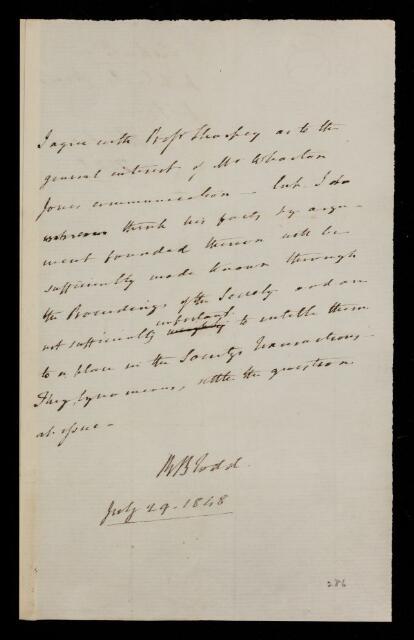 I agree with Profr Sharpey as to the
general interest of Mr Wharton
Jones communication – but I do
think his facts & argu-
ment founded thereon will be
sufficiently made known through
the Proceedings of the Society and are
not sufficiently important weighty to entitle them
to a place in the Society's Transactions –
They, by no means, settle the question
at issue –
RB Todd.
July 29. 1848
286